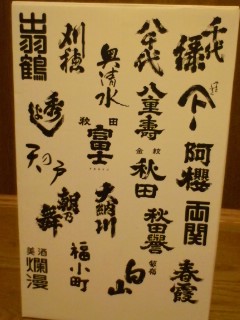 千代緑
八千代
刈穂
出羽鶴
奥清水
八重壽
秋田富士
秀よし
阿櫻
金紋秋田
大納川
天の戸
両関
秋田譽
朝乃舞
春霞
白山
福小町
美酒爛漫